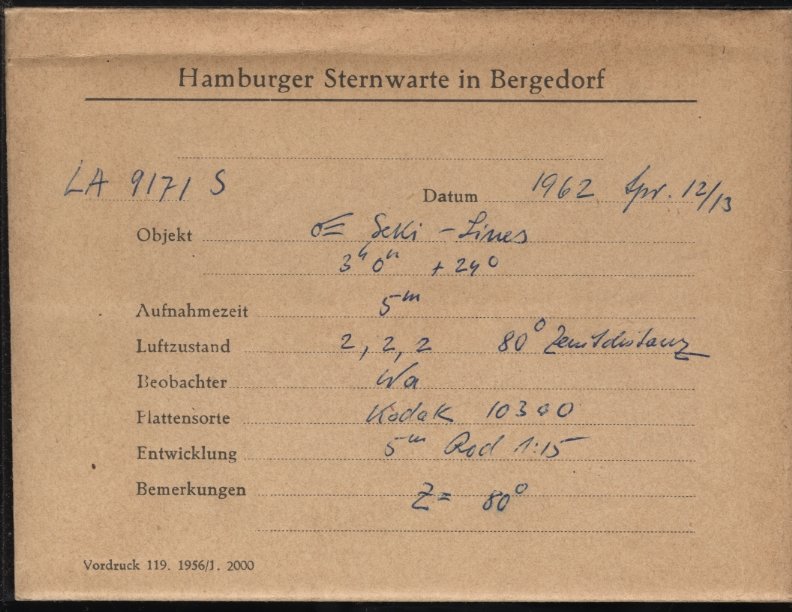 Hamburger Sternwarte in Bergedorf
LA 9171 S Datum 1962 Apr. 12/13
Objekt ☄ Seki - Lines
3ʰ 0ᵐ + 24°
Aufnahmezeit 5ᵐ
Luftzustand 2, 2, 2 80° Zenitdistanz
Beobachter Wa
Plattensorte Kodak 103a0
Entwicklung 5ᵐ Rod 1:15
Bemerkungen Z = 80°
Vordruck 119. 1956/1. 2000